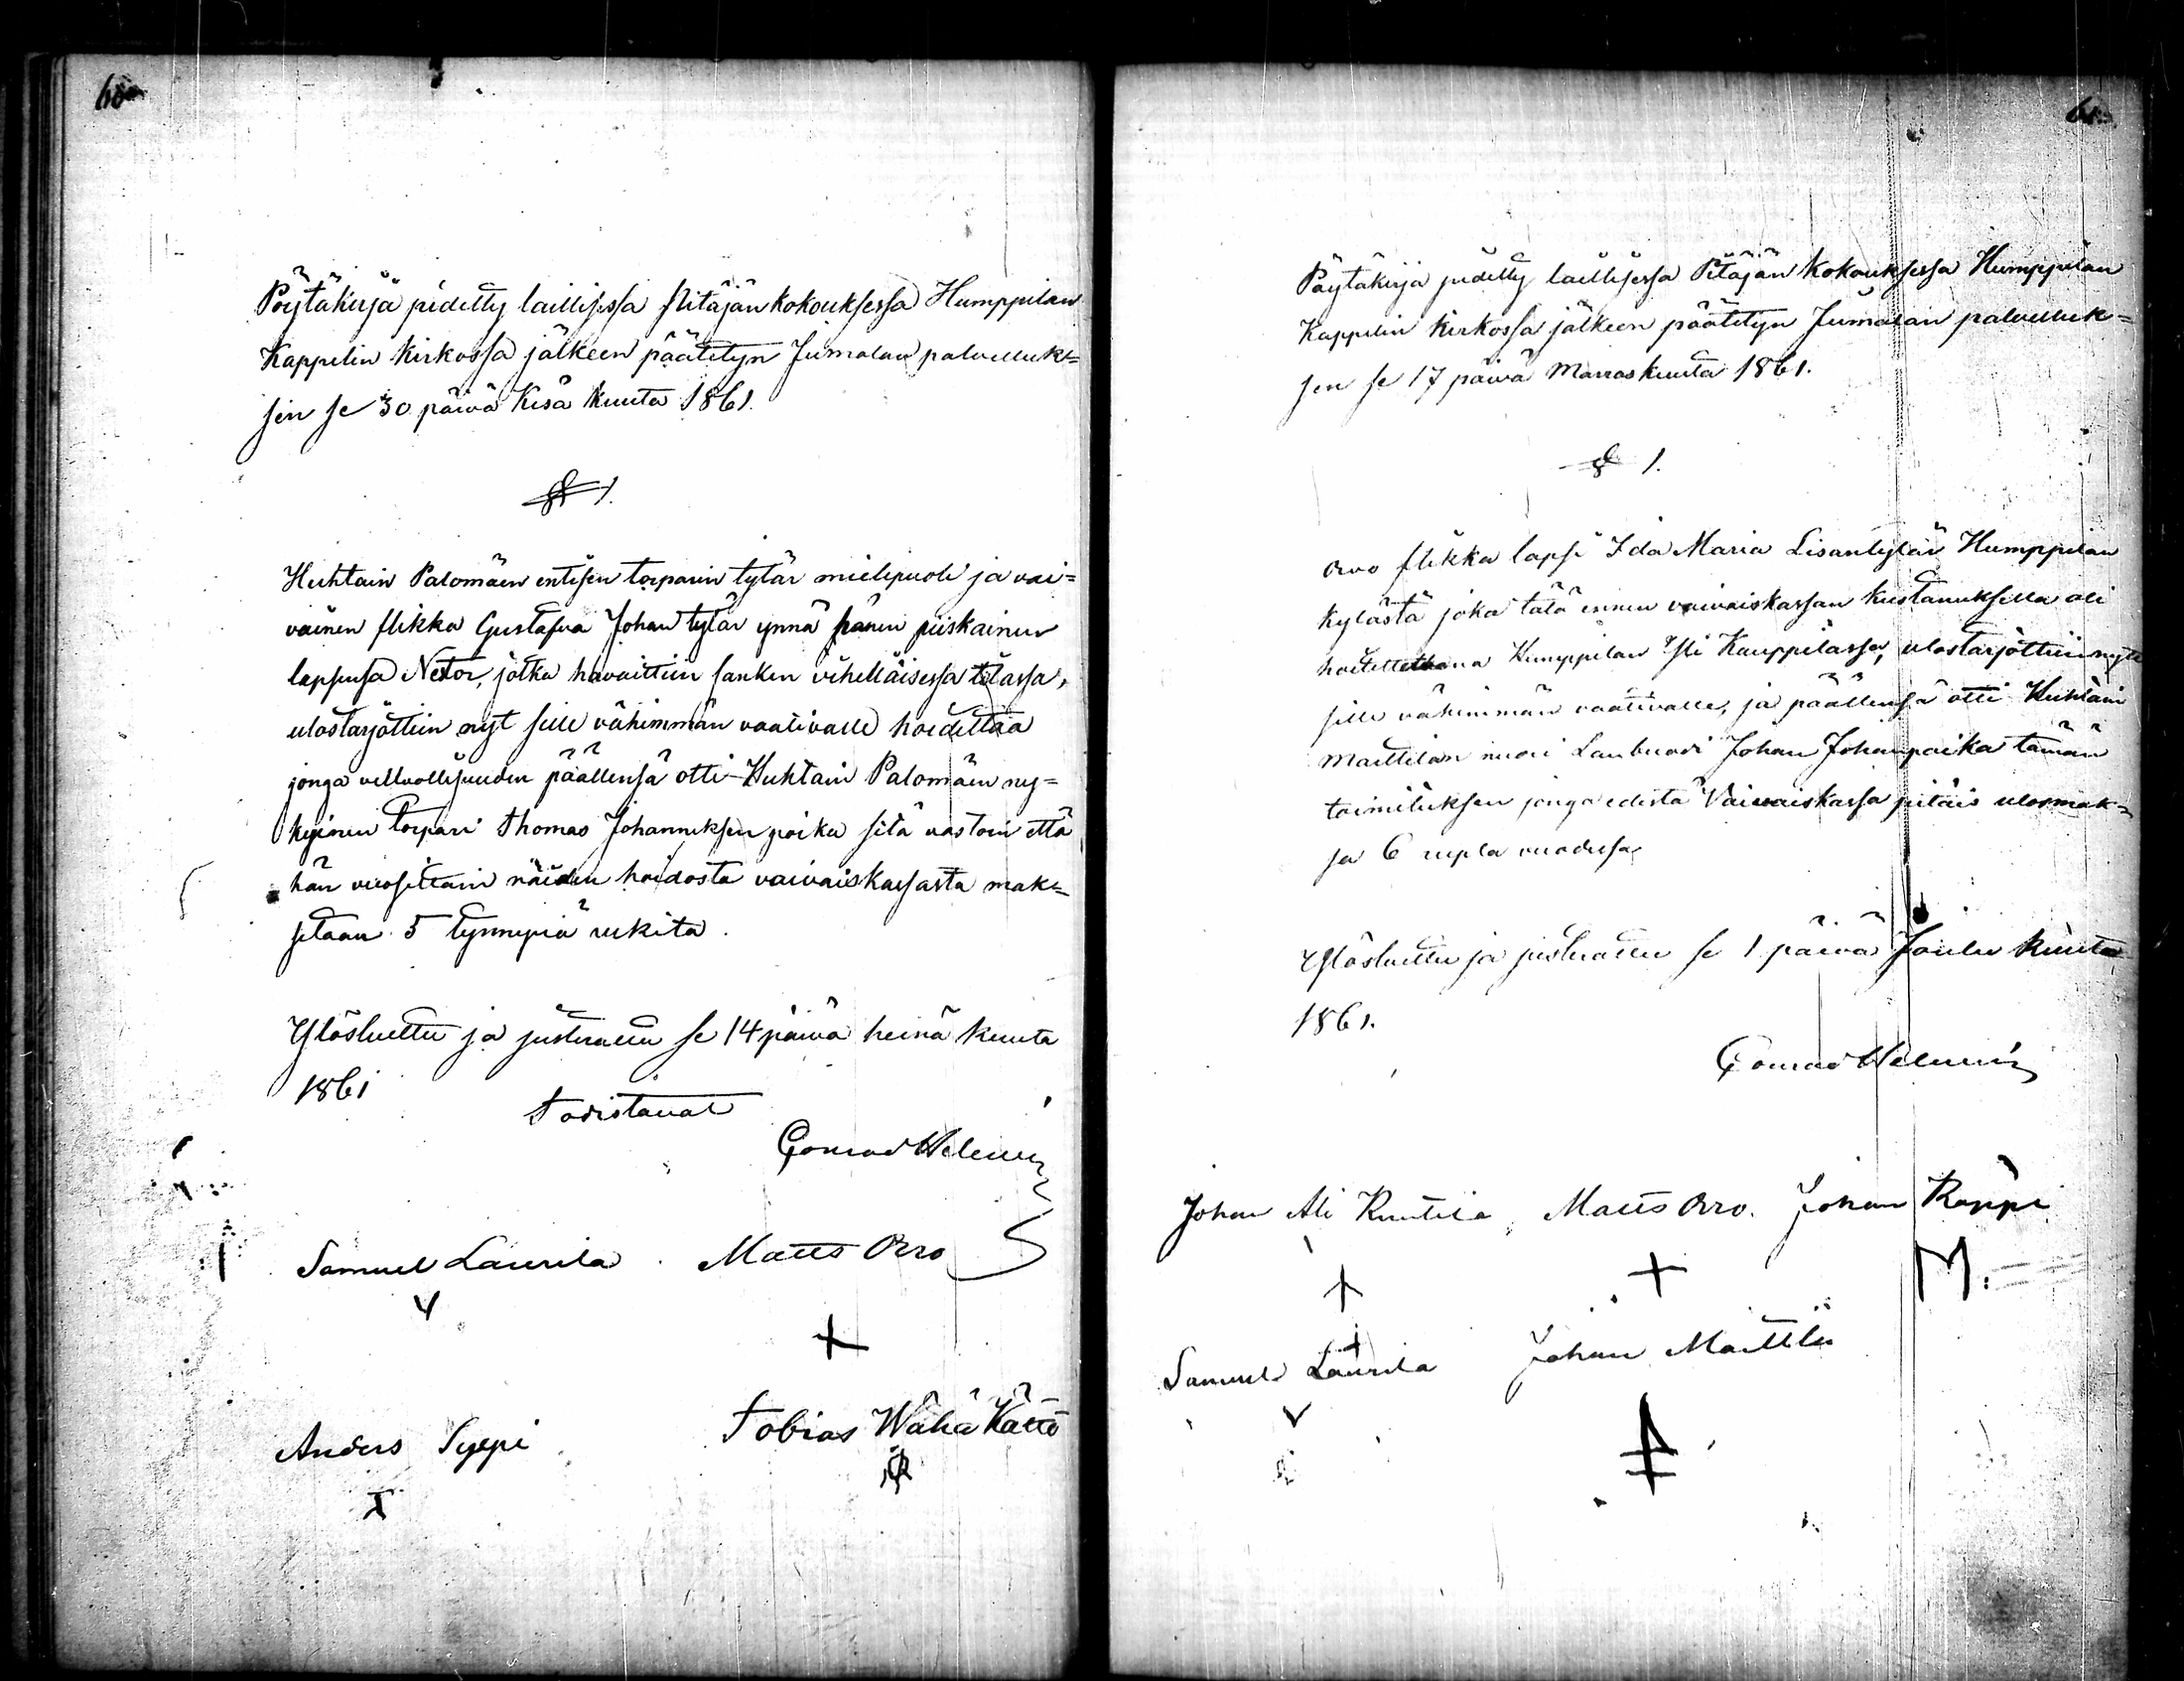 60
Pöytäkirja pidetty laillisessa Pitäjän kokouksessa Humppilan
Kappelin Kirkossa jälkeen päätetyn Jumalan palvelluk=
sen se 30 päivä Kesä kuuta 1861.
§ 1.
Huhtain Palomäen entisen torparin tytär mielipuoli ja vai=
vainen flikka Gustafva Johan tytär ynnä hänen piiskainen
lapsensa Nestor, jotka havaittiin sanken viheliäisessä tilassa,
ulostarjottiin nyt sille vähimmän vaativalle hoidettaa
jonga velvollisuuden päällensä otti Huhtain Palomäen ny=
kyinen torpari Thomas Johanneksen poika sitä vastoin että
hän vuosittain näiden hoidosta vaivaiskassasta mak=
setaan 5 tynnyriä rukita.
Ylösluettu ja justerattu se 14 päivä heinä kuuta
1861
Todistavat
Conrad Helenius
Samuel Laurila Matts Orro
Anders Seppi Tobias Wähä Kättö
61
Pöytäkirja pidetty laillisessa Pitäjän Kokouksessa Humppilan
Kappelin Kirkossa jälkeen päätetyn Jumalan palvelluk=
sen se 17 päivä Marraskuuta 1861.
§ 1.
Orvo flikka lapsi Ida Maria Lisantytär Humppilan
kylästä joka tätä ennen vaivaiskassan kustannuksella oli
hoitettavana Humppilan Yli Kauppilassa, ulostarjottiin nyt
sille vähimmän vaativalle, ja päällensä otti Huhtain
Marttilan nuori Lanbuodi Johan Johanpoika tämän
toimituksen jonga edestä Vaivaiskassa pitäis ulosmak=
sa 6 rupla vuodessa,
Ylösluettu ja justerattu se 1 päivä Joulu kuuta
1861.
Conrad Helenius
Johan Ali Runtila Matts Orro. Johan Rappi
M.
Samuel Laurila Johan Marttila